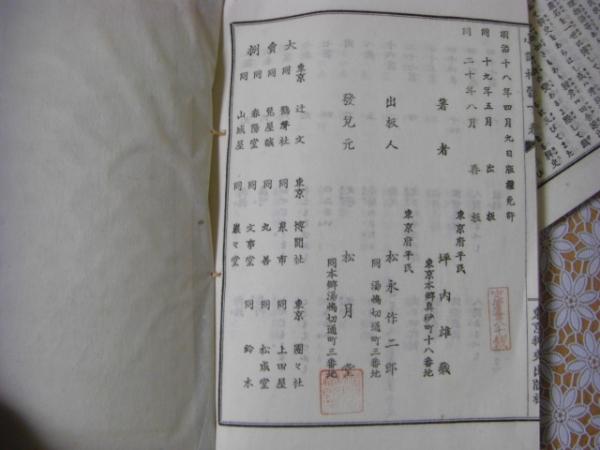 明治十八年四月九日版權免許
同 十九年五月 出板
同 二十年八月 再板
東京府平民
著者 坪内雄藏
東京本郷真砂町十八番地
東京府平民
出板人 松永作二郎
同 湯嶋切通町三番地
發兌元 松月堂
同本郷湯嶋切通町三番地
大賣捌
東京 辻文 東京 博聞社 東京 團々社
同 鶴聲社 同 泉市 同 上田屋
同 兎屋誠 同 丸善 同 松成堂
同 春陽堂 同 文事堂 同 鈴木
同 山城屋 同 巖々堂